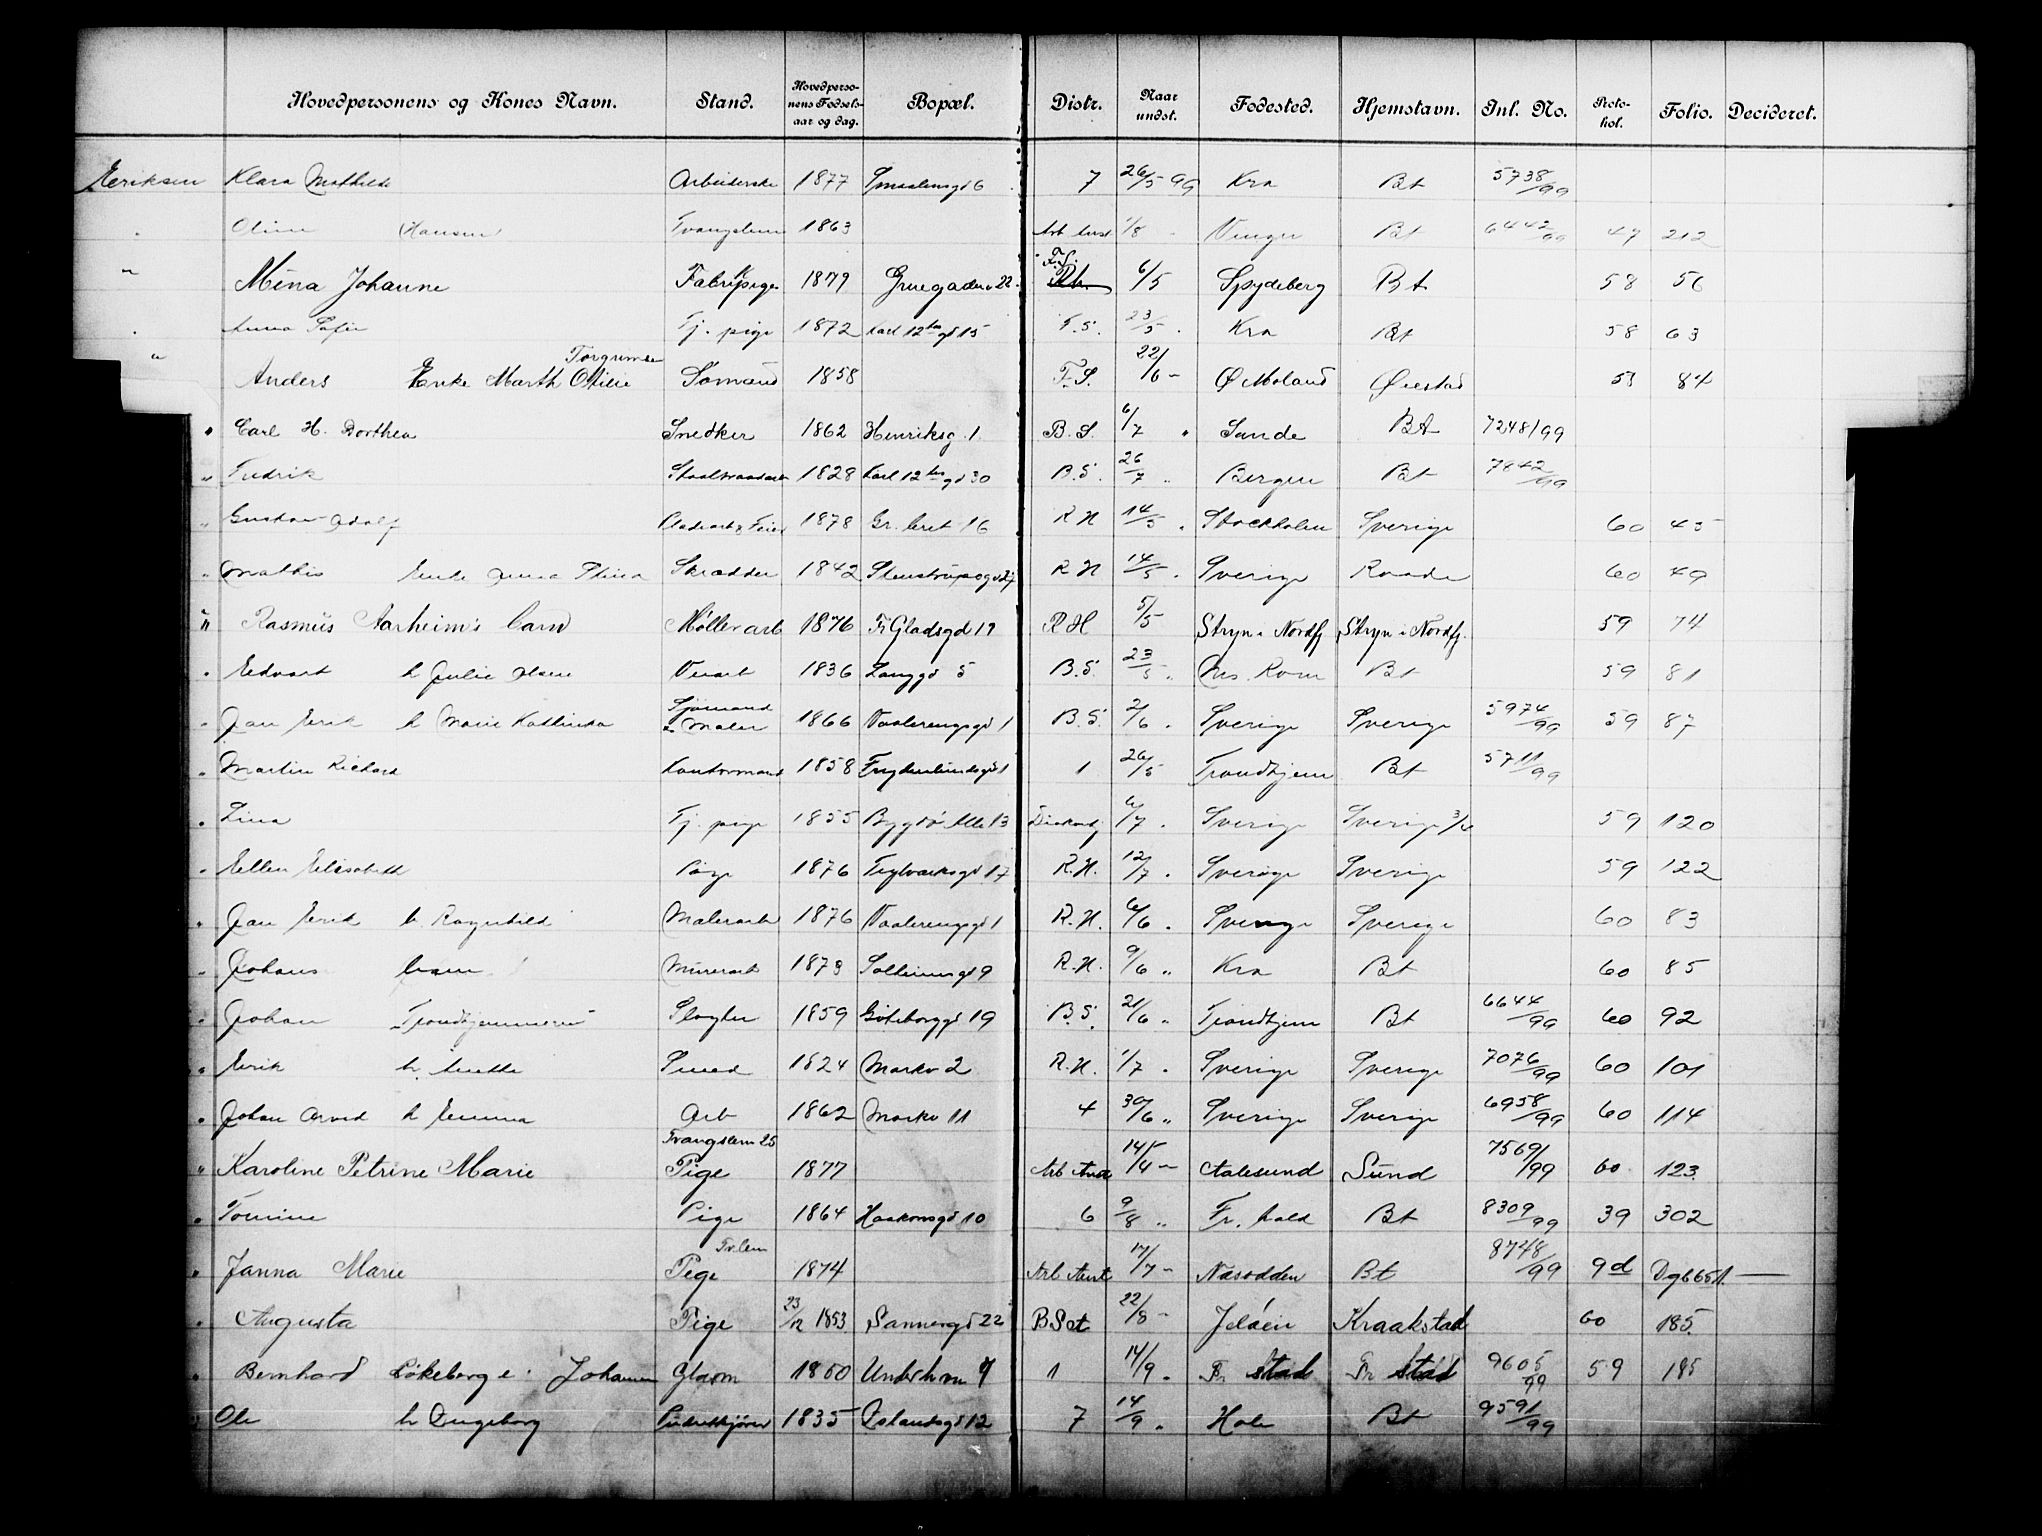 Hovedpersonens og Kones Navn. Stand. Hovedpersonens Fødselsaar og dag. Bopæl. Distr. Naar undst. Fødested. Hjemstavn. Inl. No. Protokol. Folio. Decideret.
Eriksen Klara Mathilde Arbeiderske 1877 Smaalensgd 6 7 26/5 99 Kra Bt 5738/99
Oline (Hansen) Tvangslem 1863 Arb Anst 1/8 Vinger Bt 6442/99 47 212
" Mina Johanne Fabrikpige 1879 Gruegaden 22 F.S. 6/5 Spydeberg Bt 58 56
Anna Sofie Tj. pige 1872 Karl 12tes gd 15 F.S. 23/5 Kra Bt 58 63
Torgrimsen
" Anders Enke Marth Otilie Sømand 1858 F.S. 22/6 - Ø Moland Øiestad 58 84
" Carl H. Dorthea Snedker 1862 Henriksg. 1 B.S. 6/7 " Sande Bt 7248/99
" Fredrik 1828 Karl 12tes gd 30 B.S. 26/7 " Bergen Bt 7842/99
" Gustav Adolf 1878 Gr. leret 16 R H 14/5 " Stockholm Sverige 60 45
" Mathis Enke Anna Stina Skrædder 1842 Stenstrupsgd 27 R H 14/5 . Sverige Raade 60 49
" Rasmus Aarheim's barn Møllerarb 1876 Fr Gladsgd 19 R H 5/5 Stryn i Nordfj Stryn i Nordfj. 59 74
" Edvart h Julie Olsen 1836 Langgd 5 B.S. 23/5 " Bt 59 81
Sjømand
" Jan Erik h Marie Kathinka Maler 1866 Vaalerengsgd 1 B.S. 2/6 . Sverige Sverige 5974/99 59 87
" Martin Richard Kontormand 1858 Frydenlundsgd 1 1 26/5 Trondhjem Bt 5711/99
" Lina Tj. pige 1855 Bygdø Alle 13 Diakonhj 6/7 . Sverige Sverige 3/4 59 120
" Ellen Elisabeth Pige 1876 Teglverksgd 17 R.H. 12/7 . Sverige Sverige 59 122
" Jan Erik h. Ragnhild Malerarb 1876 Vaalerengsgd 1 R.H. 6/6 . Sverige Sverige 60 83
" Johans barn Murerarb 1879 Solheimsgd 9 R.H. 9/6 " Kra Bt 60 85
" Johan "Trondhjemmeren" Slagter 1859 Gøteborggd 19 B.S. 21/6 " Trondhjem Bt 6644/99 60 92
" Erik h. Anette Smed 1824 Markv 2 R.H. 1/7 . Sverige Sverige 7076/99 60 101
" Johan Arvid h Emma Arb 1862 Markv 11 4 30/6 " Sverige Sverige 6958/99 60 114
Tvangslem 25
" Karoline Petrine Marie Pige 1877 Arb Anst 14/4 - Aalesund Sund 7569/99 60 123
" Tomine Pige 1864 Haakonsgd 10 6 9/8 " Fr. hald Bt 8309/99 39 302
Tv. lem
" Janna Marie Pige 1874 Arb Anst 17/7 - Næsodden Bt 8748/99 9d Dg 665 1. —
" Augusta Pige 23/12 1853 Sannergd 22 B Set 22/8 - Jeløen Kraakstad 60 185
" Bernhard Løkeberg e. Johannes Glasm 1860 Underhvn 7 1 14/9 . Fr stad Fr stad 9605/99 59 185
" Ole h Ingeborg 1835 Islandsgd 12 7 14/9 . Hole Bt 9591/99